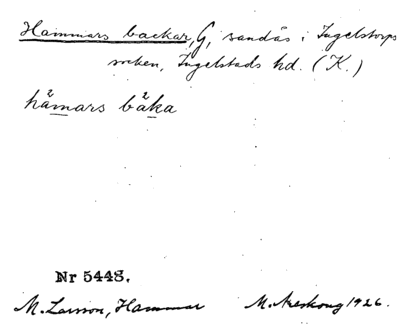 Hammars backar, G, sandås i Ingelstorps
socken, Ingelstads hd. (K.)
hämars bäka
Nr 5448.
M. Larsson, Hammar M. Areskoug 1926.